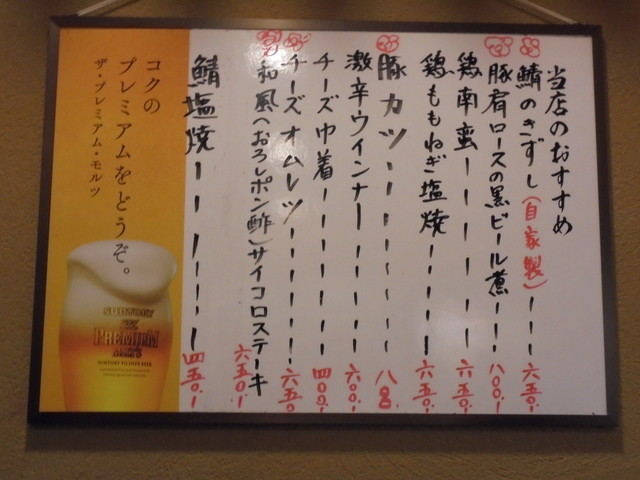 当店のおすすめ
鯖のきずし(自家製)ーーー六五〇.ー
豚肩ロースの黒ビール煮ーーー八〇〇.ー
鶏南蛮ーーーーーー六五〇.ー
鶏ももねぎ塩焼ーーーー六五〇.ー
豚カツーーーーーーー八〇〇.
激辛ウインナーーーーー六〇〇.ー
チーズ巾着ーーーーーー四〇〇.ー
チーズオムレツーーーーーー六五〇.ー
和風(おろしポン酢)サイコロステーキ六五〇.ー
鯖塩焼ーーーーーー四五〇.ー
コクの
プレミアムをどうぞ。
ザ・プレミアム・モルツ
SUNTORY
THE
PREMIUM
MALT'S
SUNTORY PILSNER BEER